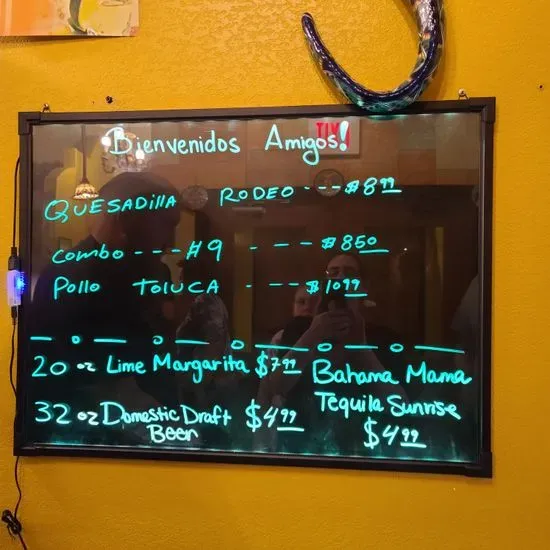 Bienvenidos Amigos!
QUESADIllA RODEO --- $8.99
Combo --- #9 - -- $8.50
Pollo TOLUCA - -- $10.99
20 oz Lime Margarita $7.99
32 oz Domestic Draft Beer $4.99
Bahama Mama
Tequila Sunrise
$4.99